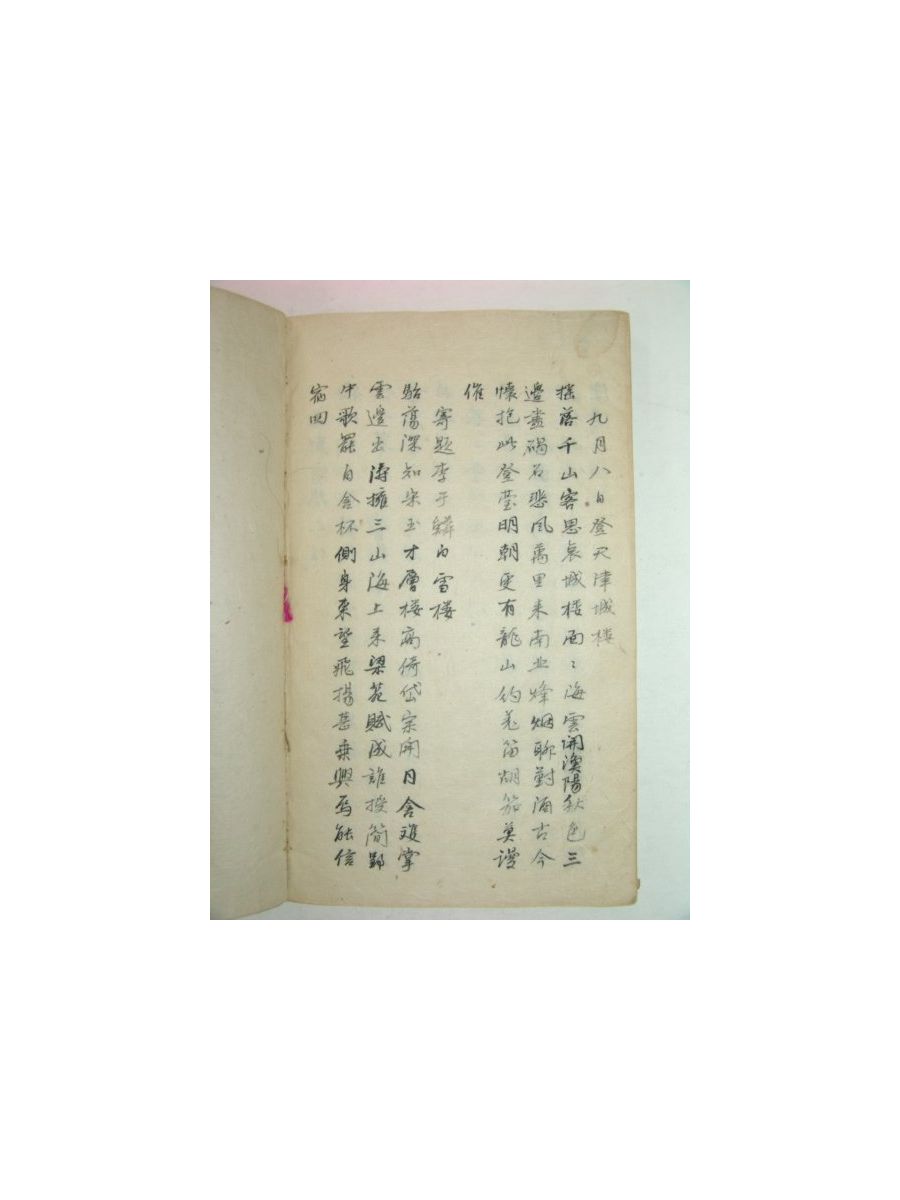 九月八日登天津城楼
搖落千山客思哀城楼面〻海雲開漁陽秋色三
邊盡碣石悲風萬里来南北烽烟聊對酒古今
懐抱此登䑓明朝更有龍山約羗笛胡笳莫謾
催
寄題李于鱗白雪楼
駘蕩深知宋玉才層楼髙倚岱宗開月含雙掌
雲邊出濤擁三山海上来梁苑賦成誰授簡郢
中歌罷自含杯側身東望飛揚甚乗興焉能信
宿回